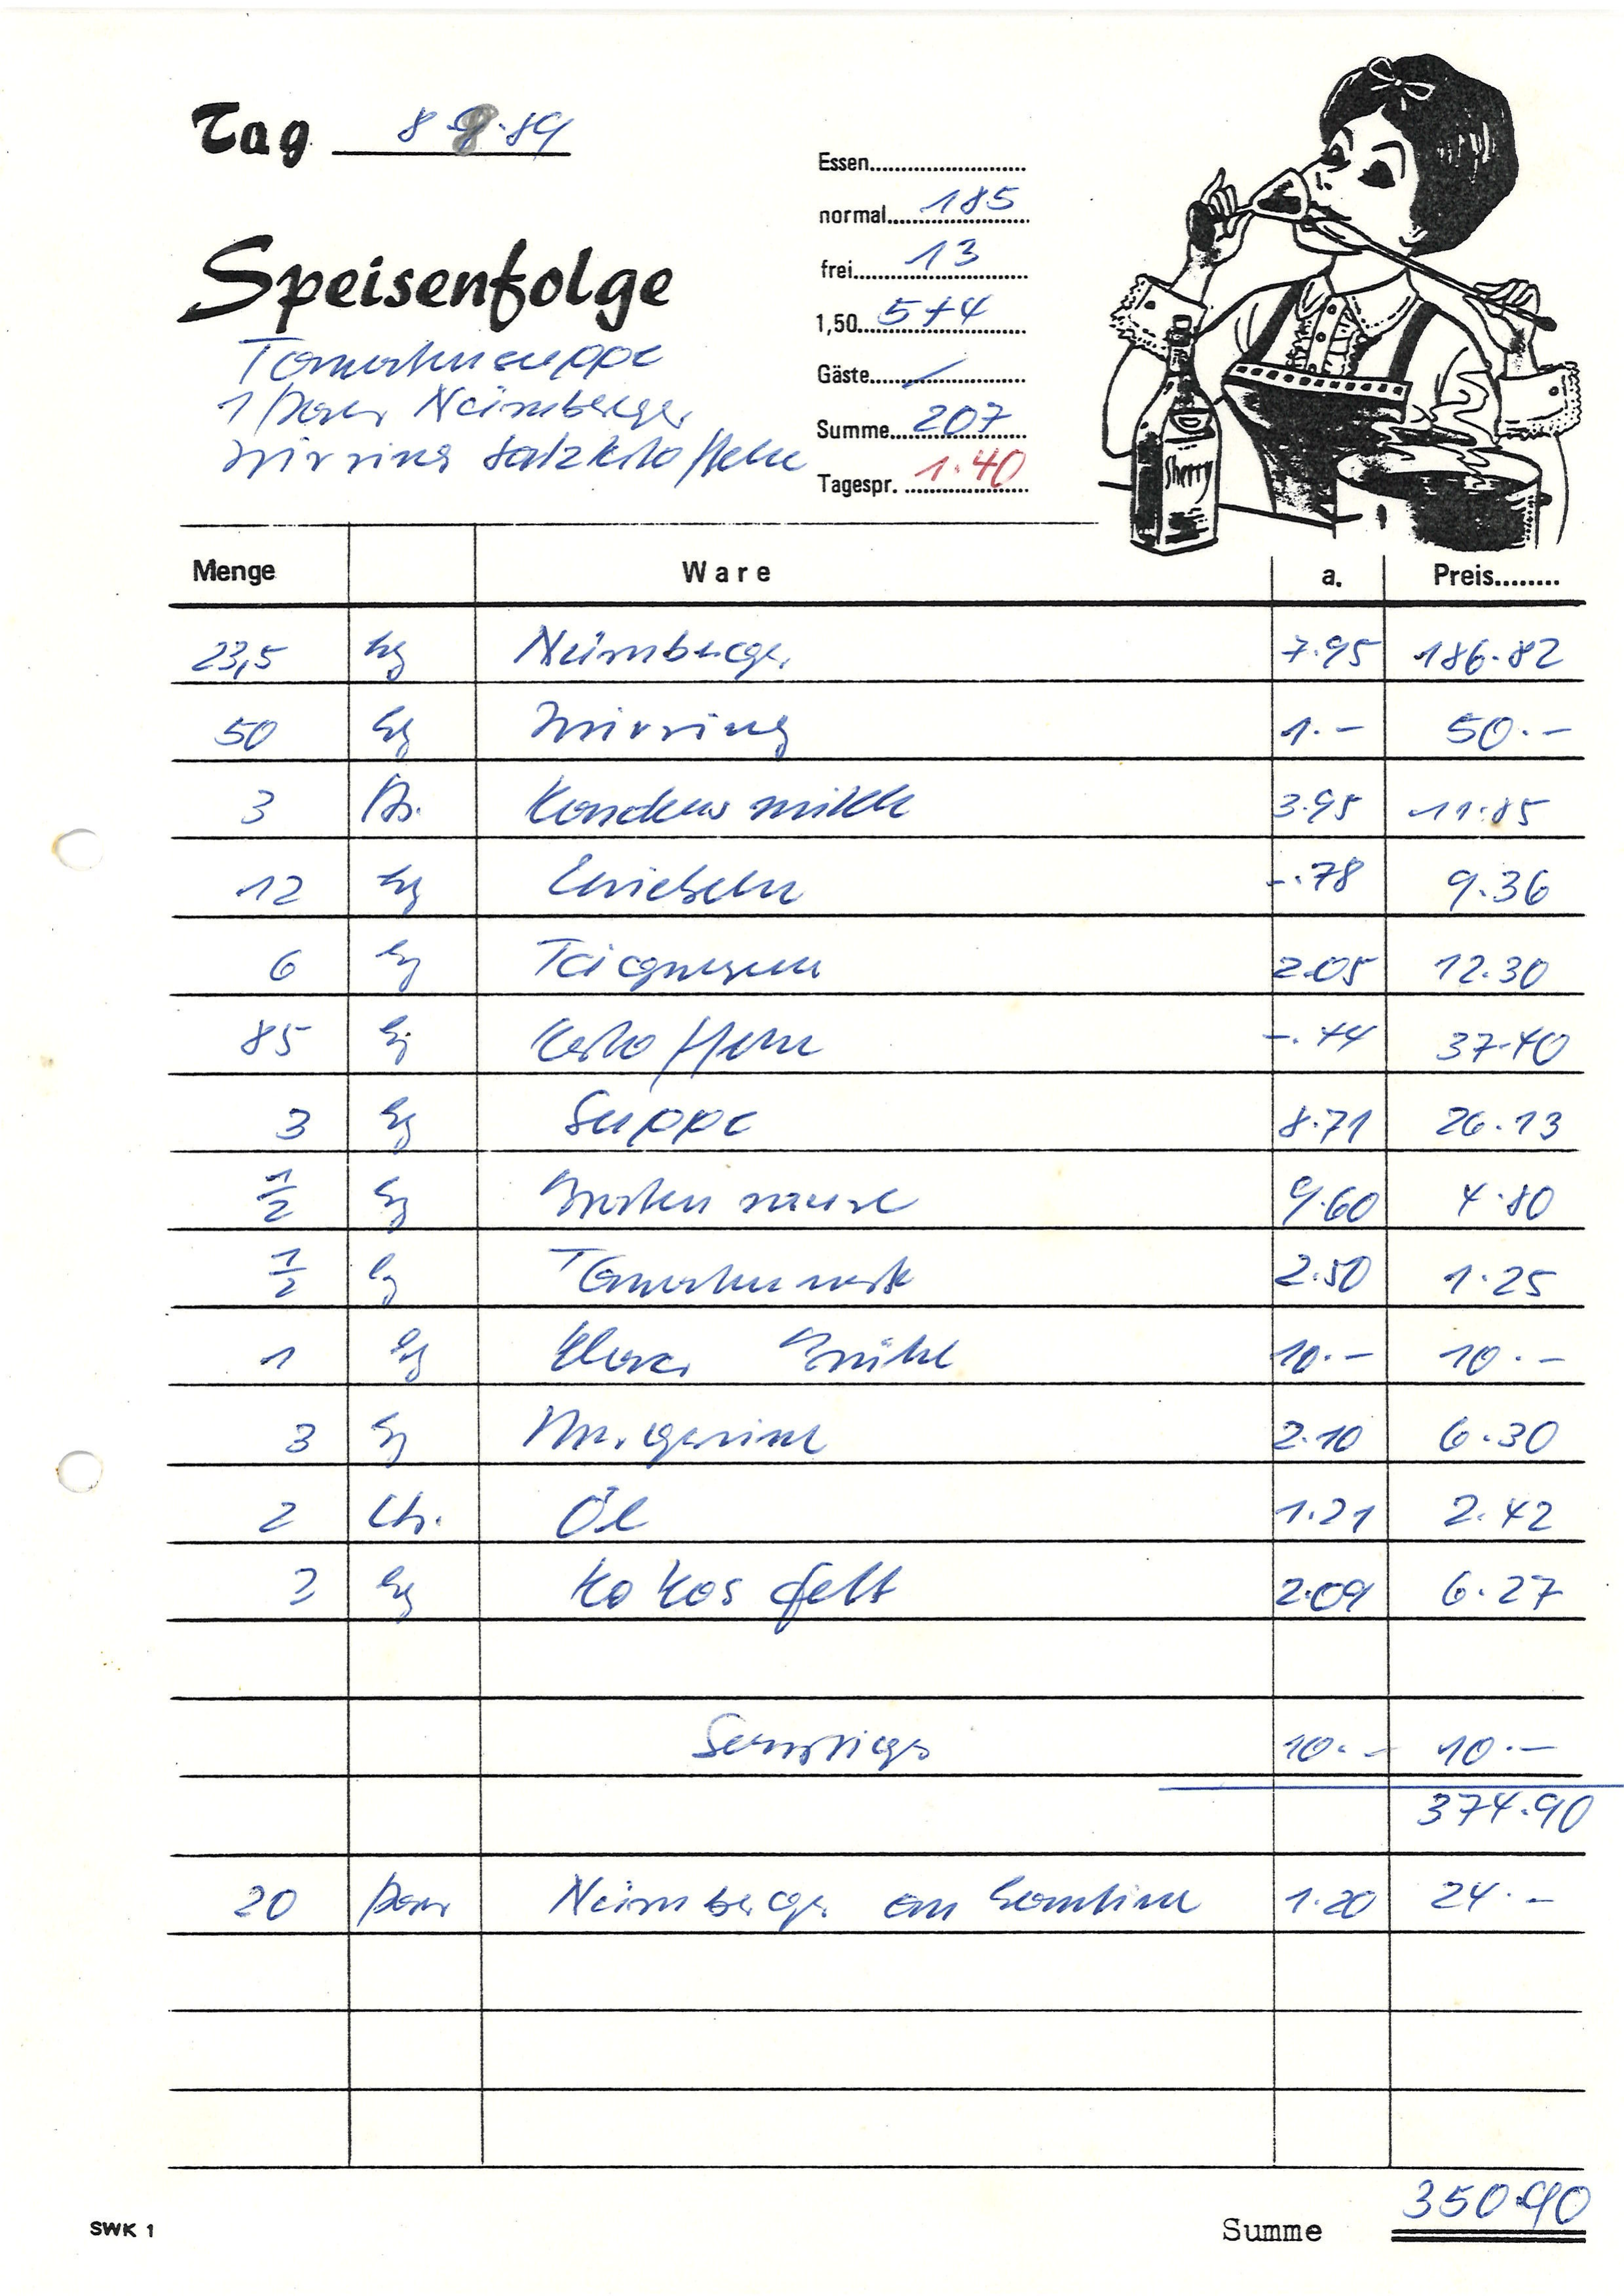 Tag 8.8.89
Essen
normal 185
frei 13
1,50 5+4
Gäste /
Summe 207
Tagespr. 1.40
Speisenfolge
Tomatensuppe
1 Paar Nürnberger
Wirsing Salzkartoffeln
Sherry
Menge Ware a. Preis
23,5 kg Nürnberger 7.95 186.82
50 kg Wirsing 1.- 50.-
3 Kondensmilch 3.95 11.85
12 kg Zwiebeln -.78 9.36
6 kg Teigwaren 2.05 12.30
85 kg Kartoffeln -.44 37.40
3 kg Suppe 8.71 26.13
1/2 kg Bratensauce 9.60 4.80
1/2 kg Tomatenmark 2.50 1.25
1 kg Klare Brühe 10.- 10.-
3 kg Margarine 2.10 6.30
2 Ltr. Öl 1.21 2.42
3 kg Kokosfett 2.09 6.27
Sonstiges 10.- 10.-
374.90
20 Paar Nürnberger an Kantine 1.20 24.-
350.90
SWK 1
Summe